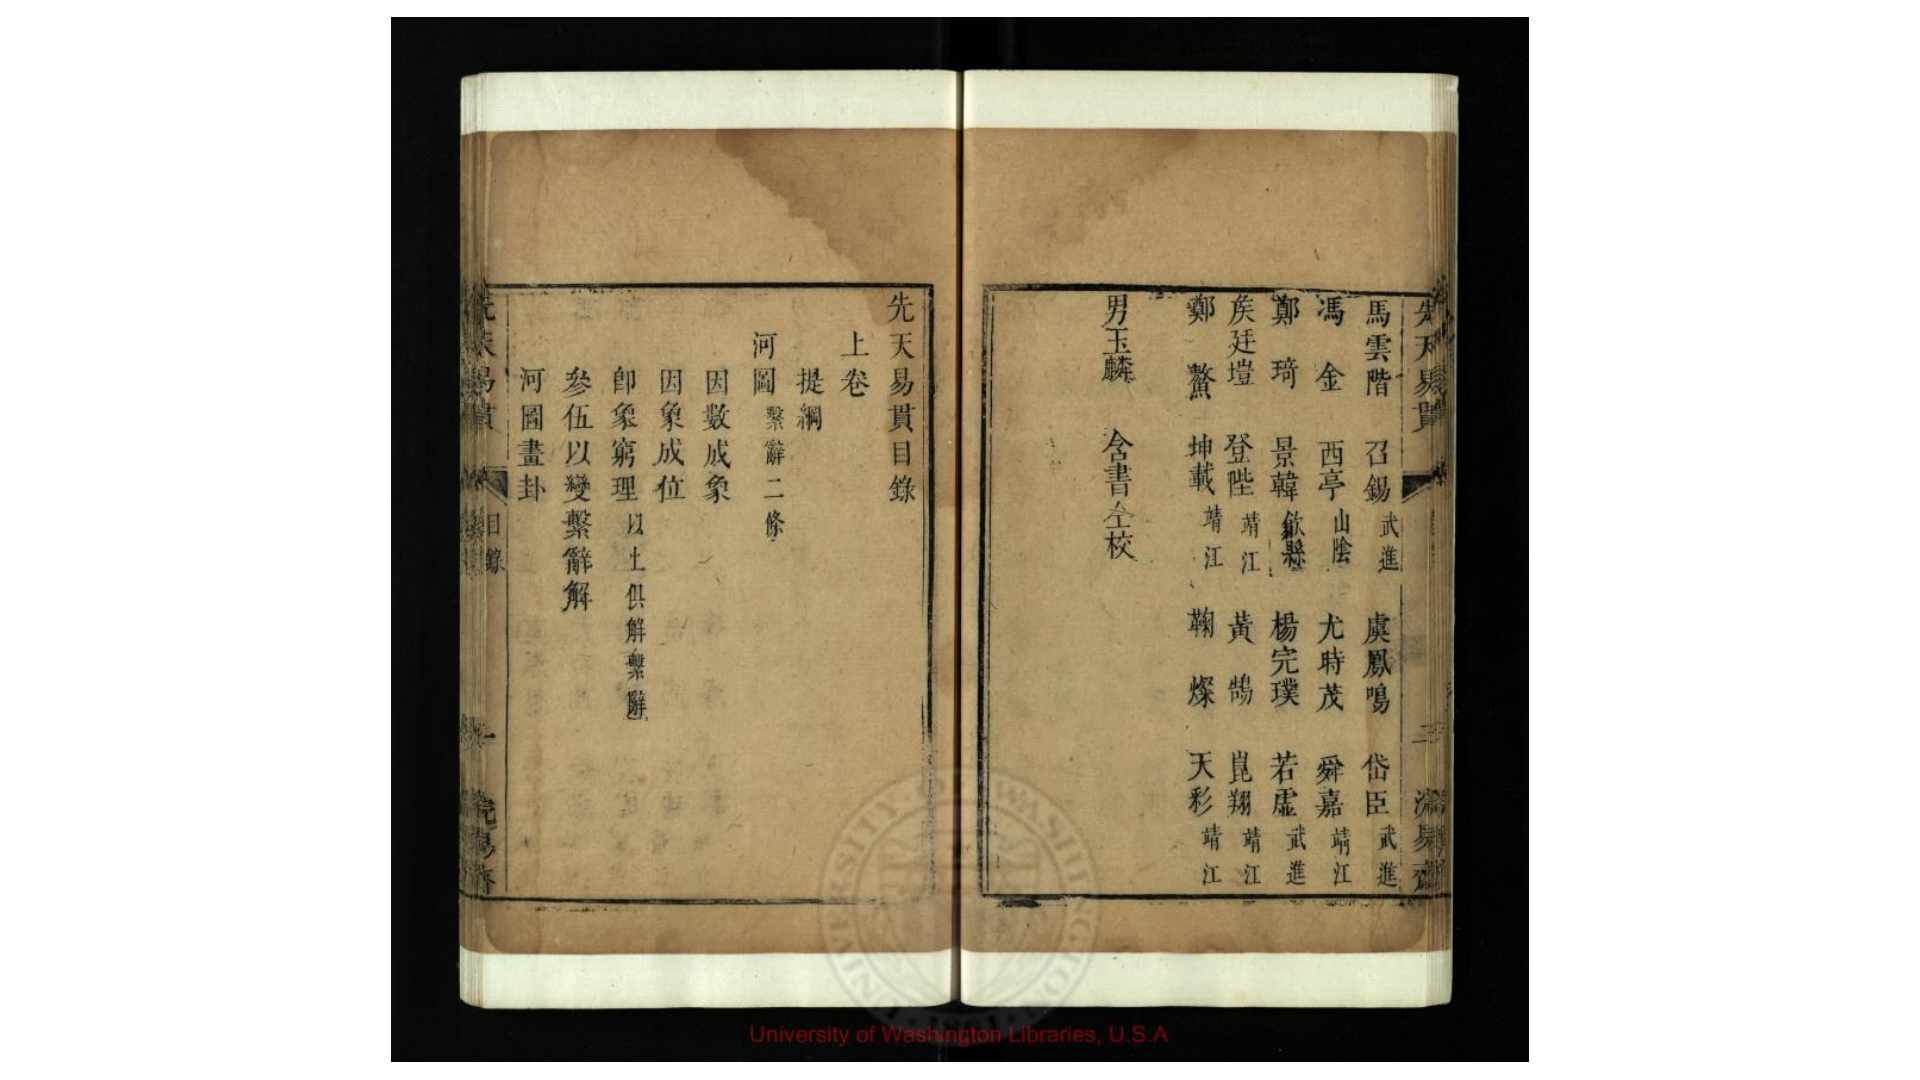 先天易貫
二
馬雲階 召錫 武進 虞鳳鳴 岱臣 武進
馮金 西亭 山陰 尤時茂 舜嘉 靖江
鄭琦 景韓 歙縣 楊完璞 若虛 武進
矦廷塏 登陛 靖江 黃鵠 崑翔 靖江
鄭鰲 坤載 靖江 鞠燦 天彩 靖江
男玉麟 含書仝校
先天易貫目錄
上卷
提綱
河圖 繫辭二條
因數成象
因象成位
卽象窮理 以上俱解繫辭
參伍以變繫辭解
河圖畫卦
先天易貫 目錄 一
University of Washington Libraries, U.S.A